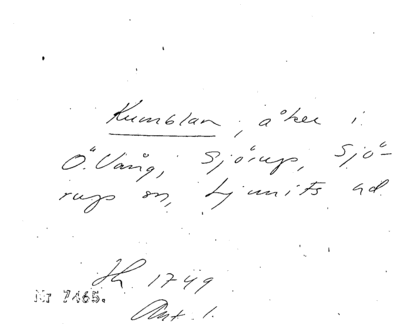 Kumblan, åker i
Ö. Vång, Sjörup, Sjö-
rups sn, Ljunits hd
Jh. 1749
Nr 7465.
Akt. 1.